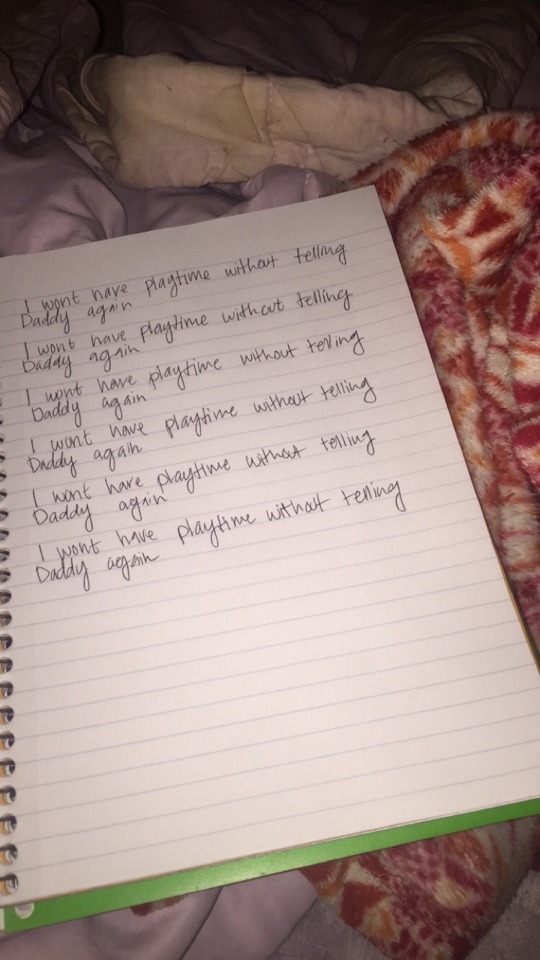 I wont have playtime without telling
Daddy again
I wont have playtime without telling
Daddy again
I wont have playtime without telling
Daddy again
I wont have playtime without telling
Daddy again
I wont have playtime without telling
Daddy again
I wont have playtime without telling
Daddy again